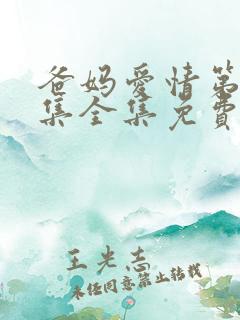 爸妈爱情第
集全集免費
王光志
未经同意禁止转载